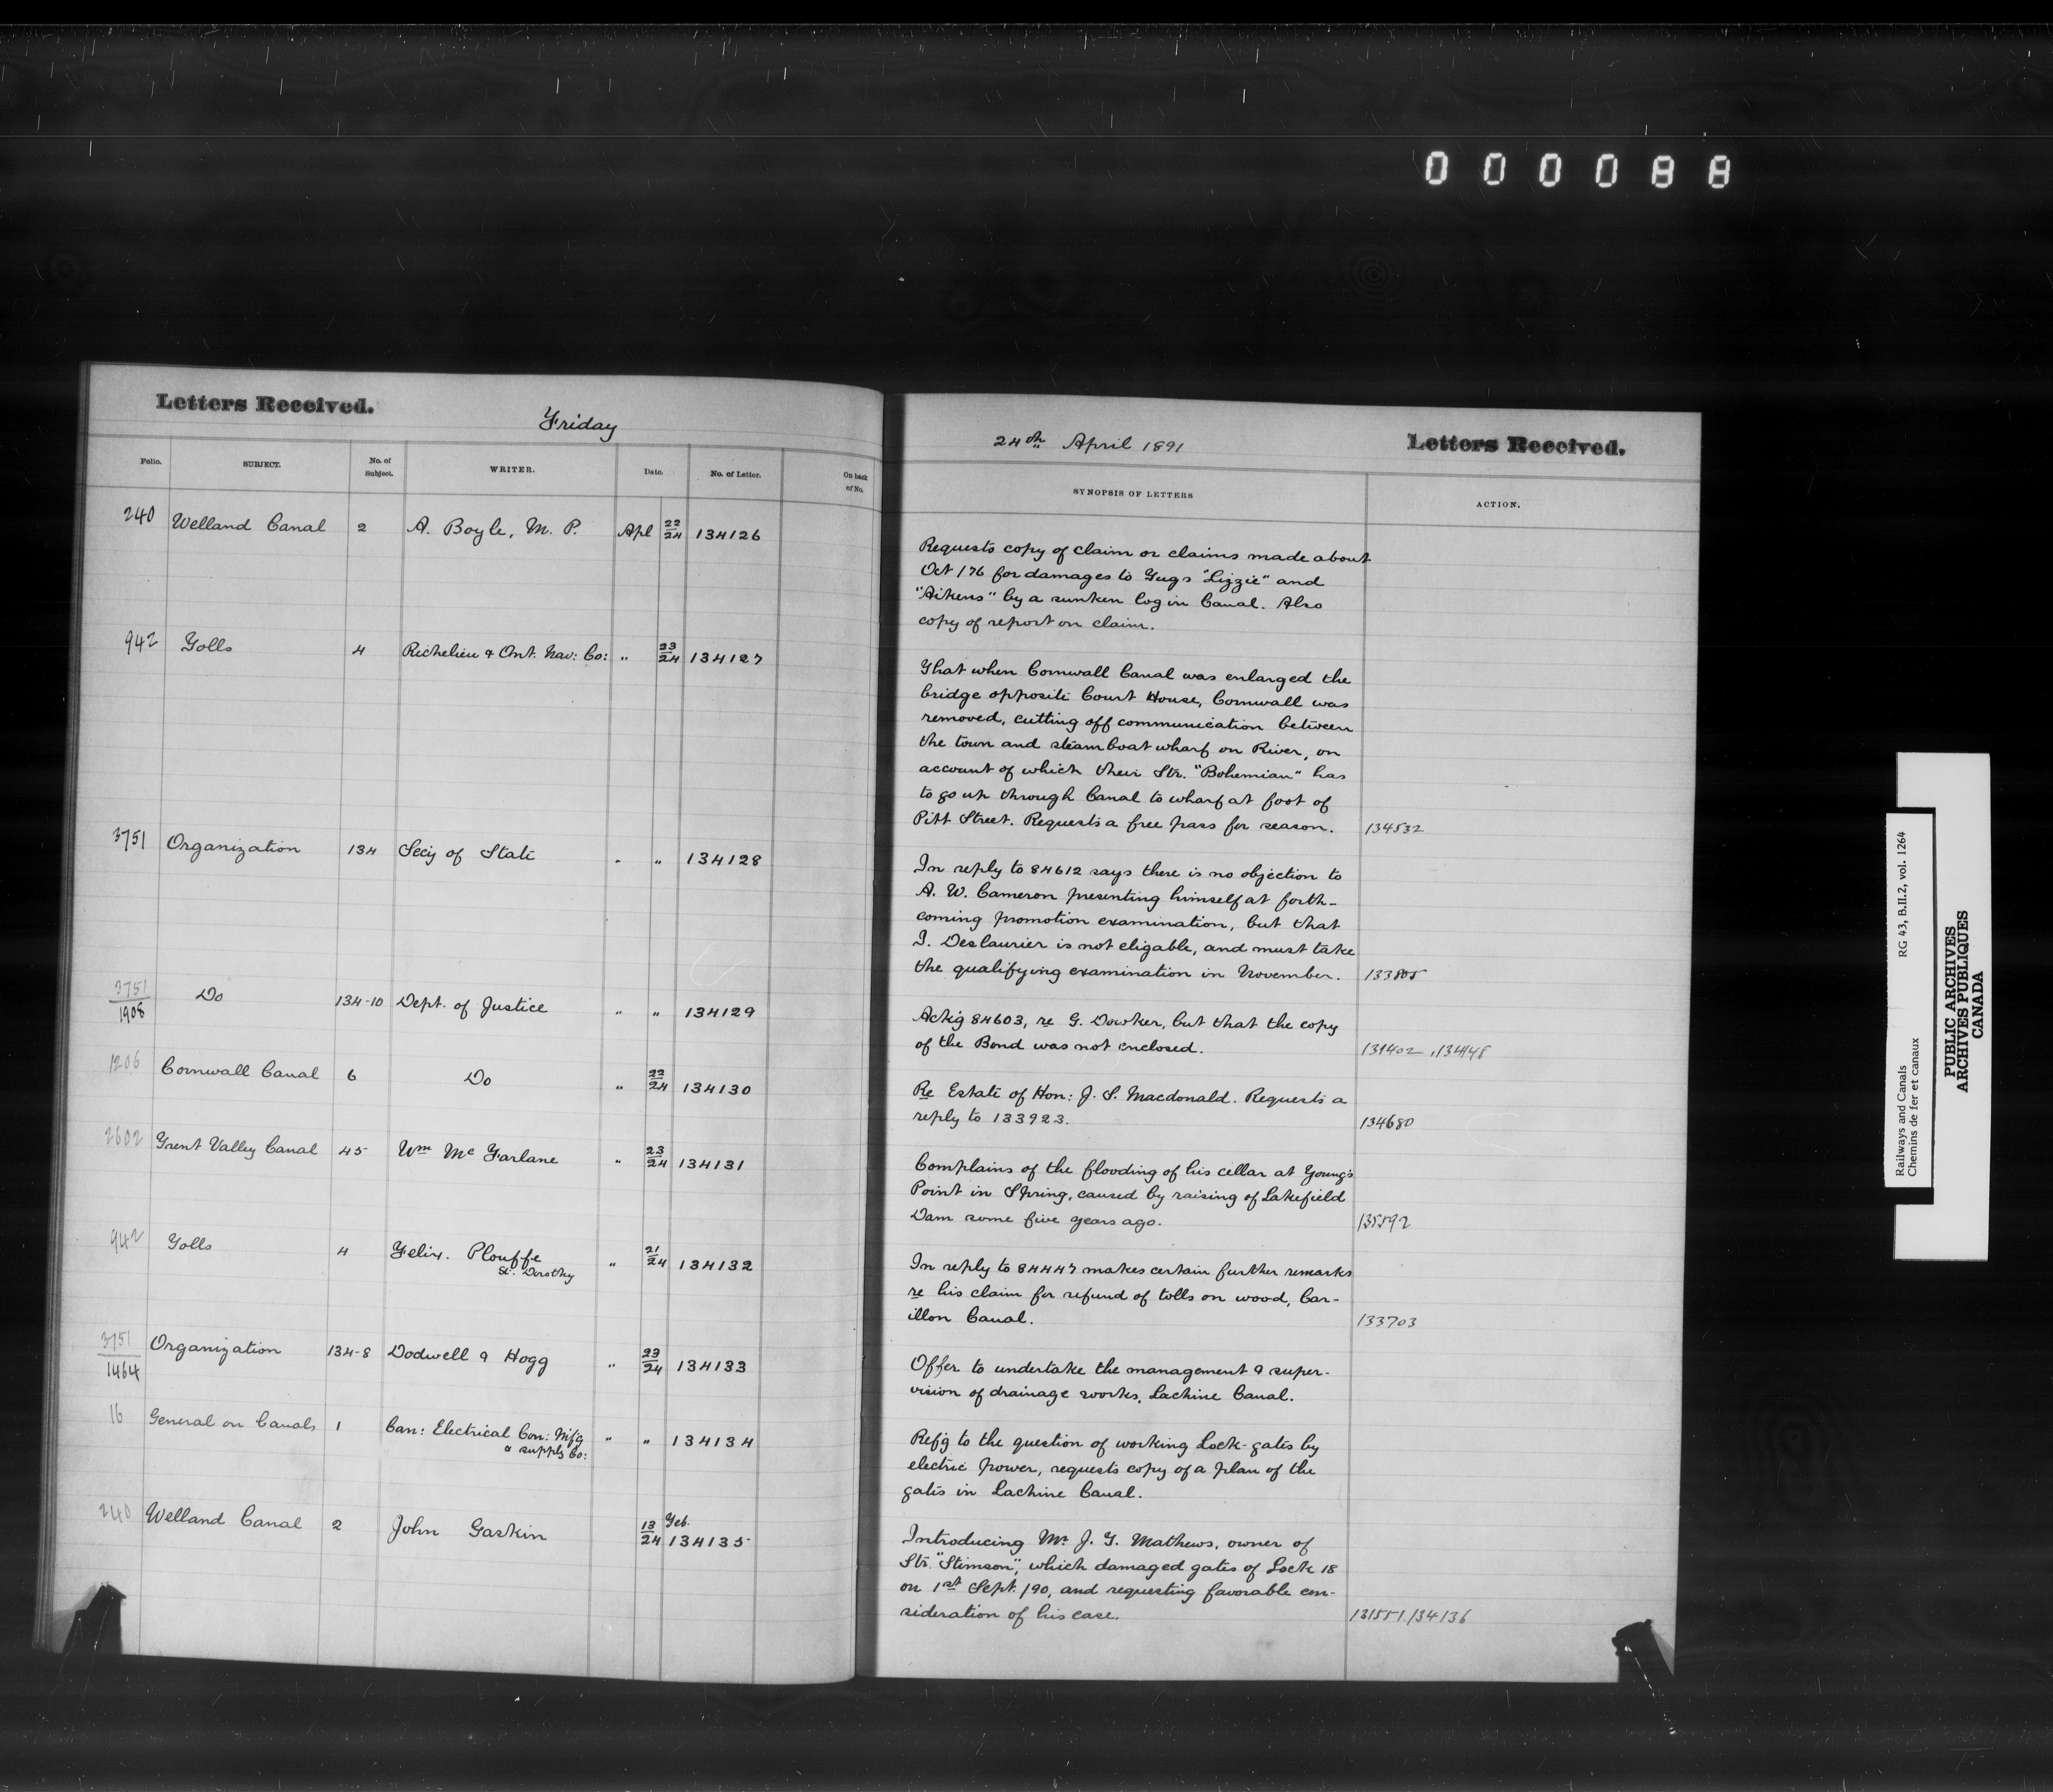 000088
Letters Received.
Friday
24th April 1891
Letters Received.
Folio. SUBJECT. No. of Subject. WRITER. Date. No. of Letter. On back of No. SYNOPSIS OF LETTERS ACTION.
240 Welland Canal 2 A. Boyle, M. P. Apl 22/24 134126
Requests copy of claim or claims made about
Oct /76 for damages to Tugs "Lizzie" and
"Aikens" by a sunken log in Canal. Also
copy of report on claim.
942 Tolls 4 Richelieu & Ont. Nav: Co: " 23/24 134127
That when Cornwall Canal was enlarged the
bridge opposite Court House, Cornwall was
removed, cutting off communication between
the town and steamboat wharf on River, on
account of which their Str. "Bohemian" has
to go up through Canal to wharf at foot of
Pitt Street. Requests a free pass for season. 134532
3751 Organization 134 Secy of State " " 134128
In reply to 84612 says there is no objection to
A. W. Cameron presenting himself at forth-
coming promotion examination, but that
I. Deslaurier is not eligable, and must take
the qualifying examination in November. 133805
3751/1908 Do 134-10 Dept. of Justice " " 134129
Ackg 84603, re G. Dowker, but that the copy
of the Bond was not enclosed. 134402, 134448
1206 Cornwall Canal 6 Do " 22/24 134130
Re Estate of Hon: J. S. Macdonald. Requests a
reply to 133923. 134680
2602 Trent Valley Canal 45 Wm Mc Farlane " 23/24 134131
Complains of the flooding of his cellar at Young's
Point in Spring, caused by raising of Lakefield
Dam some five years ago. 135592
942 Tolls 4 Felix. Plouffe " 21/24 134132
St. Dorothy
In reply to 84447 makes certain further remarks
re his claim for refund of tolls on wood, Car-
illon Canal. 133703
3751/1464 Organization 134-8 Dodwell & Hogg " 23/24 134133
Offer to undertake the management & super-
vision of drainage works, Lachine Canal.
16 General on Canals 1 Can: Electrical Con: Mfg " " 134134
& supply Co:
Refg to the question of working Lock-gates by
electric power, requests copy of a plan of the
gates in Lachine Canal.
240 Welland Canal 2 John Gaskin Feb. 13/24 134135
Introducing Mr J. T. Mathews, owner of
Str. "Stimson", which damaged gates of Lock 18
on 1st Sept. /90, and requesting favorable con-
sideration of his case. 131551. 134136
Railways and Canals RG 43, B.II.2, vol. 1264
Chemins de fer et canaux
PUBLIC ARCHIVES
ARCHIVES PUBLIQUES
CANADA